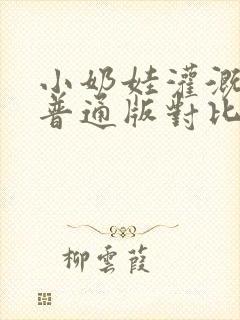 小奶娃灌溉
普通版對比
柳雲葭